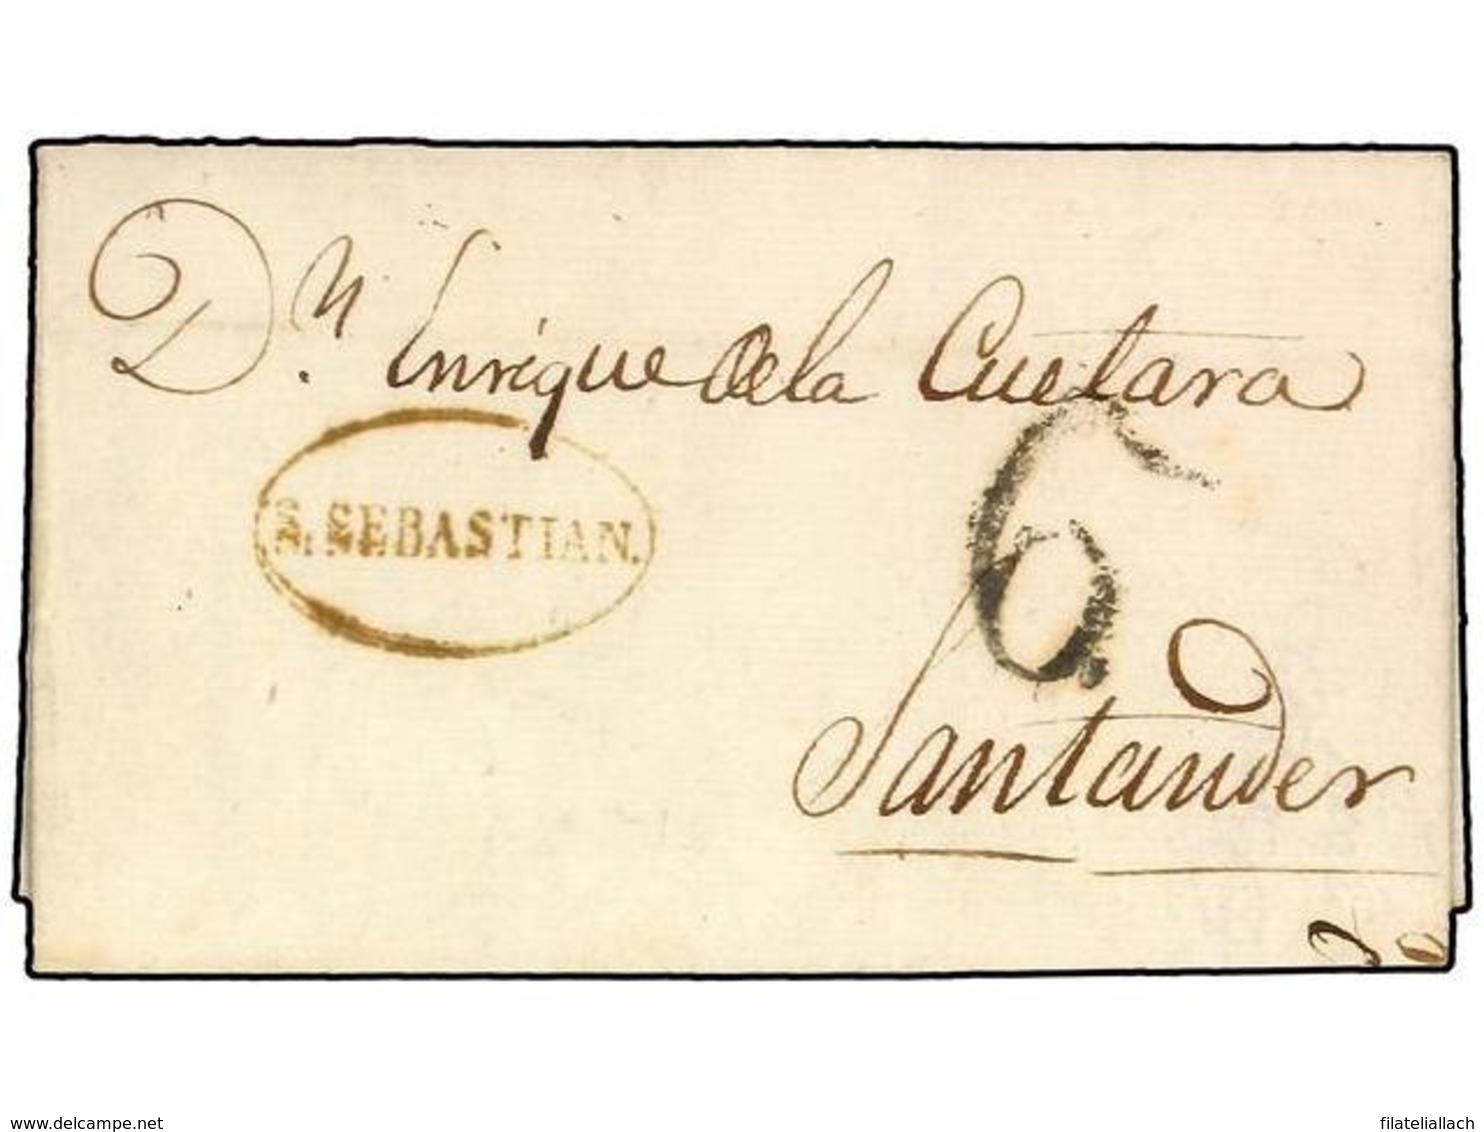 Dn. Enrique de la Cuetara
S. SEBASTIAN.
6
Santander
www.delcampe.net
filateliallach